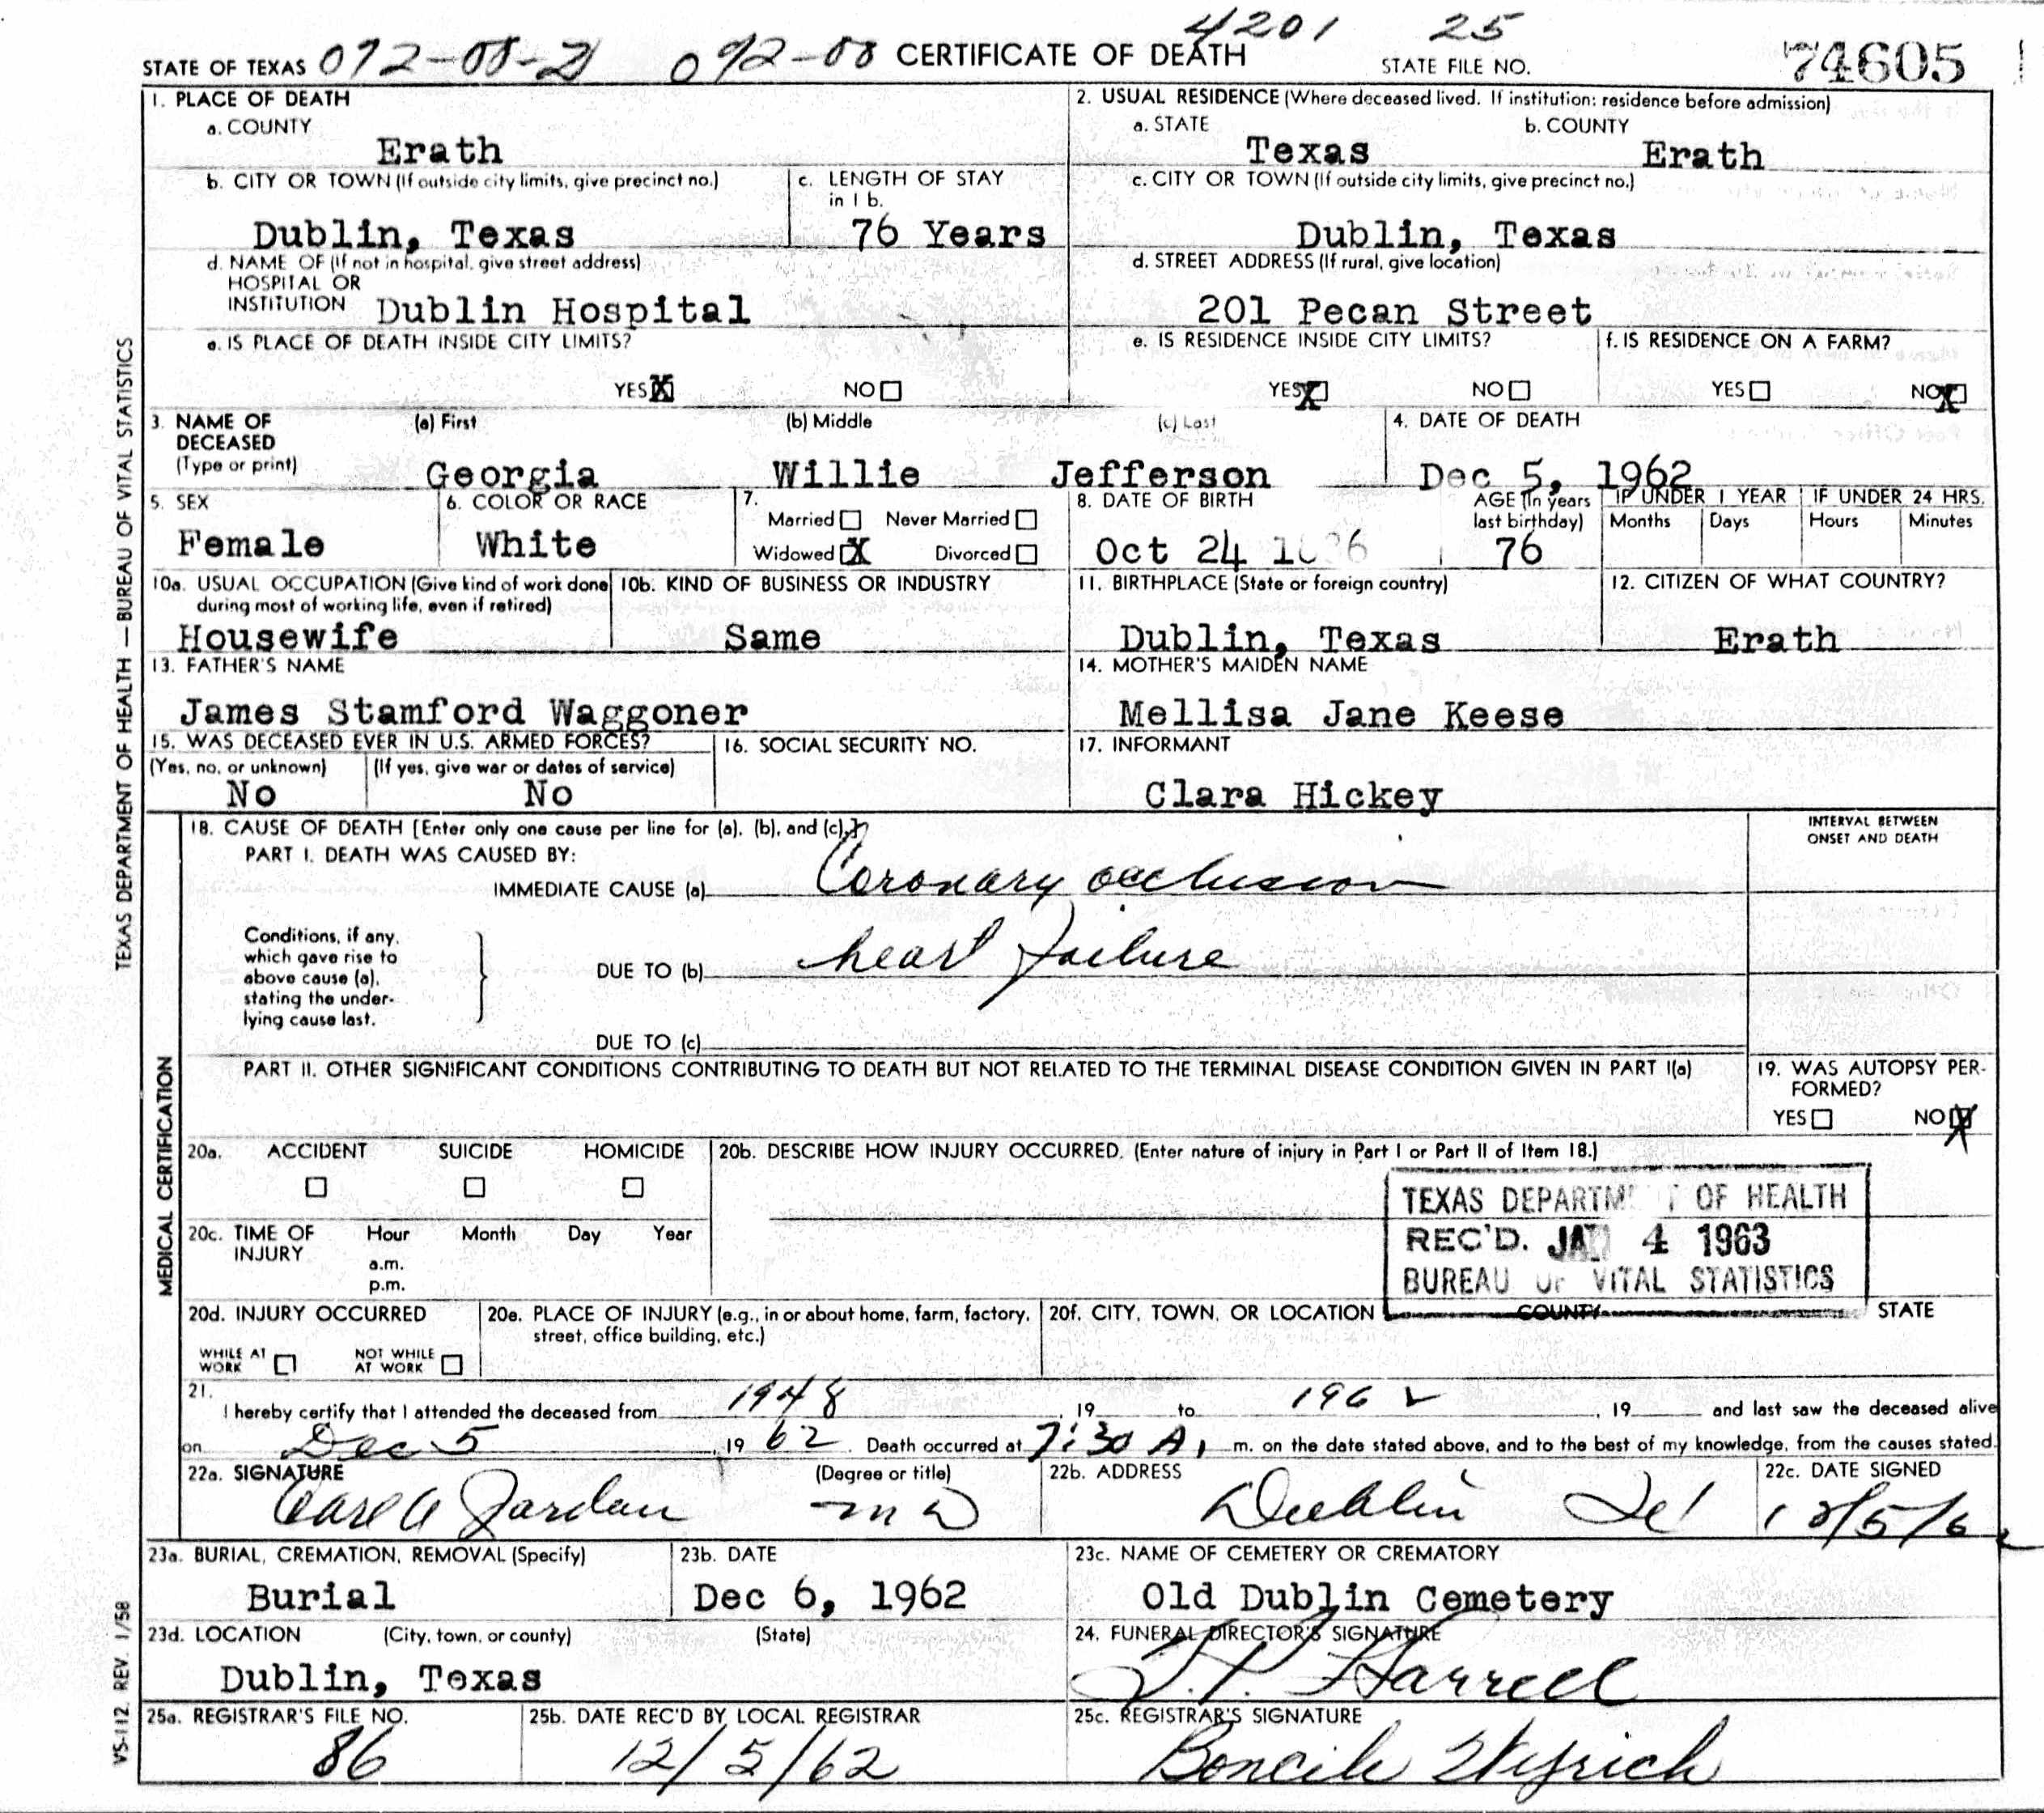 4201 25
STATE OF TEXAS 072-08-2 092-08 CERTIFICATE OF DEATH STATE FILE NO. 74605
1. PLACE OF DEATH
a. COUNTY
Erath
2. USUAL RESIDENCE (Where deceased lived. If institution: residence before admission)
a. STATE b. COUNTY
Texas Erath
b. CITY OR TOWN (If outside city limits, give precinct no.)
Dublin, Texas
c. LENGTH OF STAY
in 1 b.
76 Years
c. CITY OR TOWN (If outside city limits, give precinct no.)
Dublin, Texas
d. NAME OF (If not in hospital, give street address)
HOSPITAL OR
INSTITUTION Dublin Hospital
d. STREET ADDRESS (If rural, give location)
201 Pecan Street
e. IS PLACE OF DEATH INSIDE CITY LIMITS?
YES X NO
e. IS RESIDENCE INSIDE CITY LIMITS?
YES X NO
f. IS RESIDENCE ON A FARM?
YES NO X
3. NAME OF
DECEASED
(Type or print)
(a) First (b) Middle (c) Last
Georgia Willie Jefferson
4. DATE OF DEATH
Dec 5, 1962
5. SEX
Female
6. COLOR OR RACE
White
7.
Married Never Married
Widowed X Divorced
8. DATE OF BIRTH
Oct 24
AGE (In years
last birthday)
76
IF UNDER 1 YEAR IF UNDER 24 HRS.
Months Days Hours Minutes
10a. USUAL OCCUPATION (Give kind of work done
during most of working life, even if retired)
Housewife
10b. KIND OF BUSINESS OR INDUSTRY
Same
11. BIRTHPLACE (State or foreign country)
Dublin, Texas
12. CITIZEN OF WHAT COUNTRY?
Erath
13. FATHER'S NAME
James Stamford Waggoner
14. MOTHER'S MAIDEN NAME
Mellisa Jane Keese
15. WAS DECEASED EVER IN U.S. ARMED FORCES?
(Yes, no, or unknown) (If yes, give war or dates of service)
No No
16. SOCIAL SECURITY NO.
17. INFORMANT
Clara Hickey
18. CAUSE OF DEATH [Enter only one cause per line for (a), (b), and (c).]
PART I. DEATH WAS CAUSED BY:
IMMEDIATE CAUSE (a) Coronary occlusion
INTERVAL BETWEEN
ONSET AND DEATH
Conditions, if any,
which gave rise to
above cause (a),
stating the under-
lying cause last.
DUE TO (b) heart failure
DUE TO (c)
PART II. OTHER SIGNIFICANT CONDITIONS CONTRIBUTING TO DEATH BUT NOT RELATED TO THE TERMINAL DISEASE CONDITION GIVEN IN PART I(a)
19. WAS AUTOPSY PER-
FORMED?
YES NO X
20a. ACCIDENT SUICIDE HOMICIDE
20b. DESCRIBE HOW INJURY OCCURRED. (Enter nature of injury in Part I or Part II of Item 18.)
20c. TIME OF
INJURY
Hour Month Day Year
a.m.
p.m.
TEXAS DEPARTMENT OF HEALTH
REC'D. JAN 4 1963
BUREAU OF VITAL STATISTICS
20d. INJURY OCCURRED
WHILE AT
WORK
NOT WHILE
AT WORK
20e. PLACE OF INJURY (e.g., in or about home, farm, factory,
street, office building, etc.)
20f. CITY, TOWN, OR LOCATION COUNTY STATE
21.
I hereby certify that I attended the deceased from 1948, 19 to 1962, 19 and last saw the deceased alive
on Dec 5, 19 62. Death occurred at 7:30 A. m. on the date stated above, and to the best of my knowledge, from the causes stated.
22a. SIGNATURE (Degree or title)
Carl A Jordan MD
22b. ADDRESS
Dublin
22c. DATE SIGNED
12/5/62
23a. BURIAL, CREMATION, REMOVAL (Specify)
Burial
23b. DATE
Dec 6, 1962
23c. NAME OF CEMETERY OR CREMATORY
Old Dublin Cemetery
23d. LOCATION (City, town, or county) (State)
Dublin, Texas
24. FUNERAL DIRECTOR'S SIGNATURE
Harrell
25a. REGISTRAR'S FILE NO.
86
25b. DATE REC'D BY LOCAL REGISTRAR
12/5/62
25c. REGISTRAR'S SIGNATURE
TEXAS DEPARTMENT OF HEALTH — BUREAU OF VITAL STATISTICS
MEDICAL CERTIFICATION
VS-112. REV. 1/58